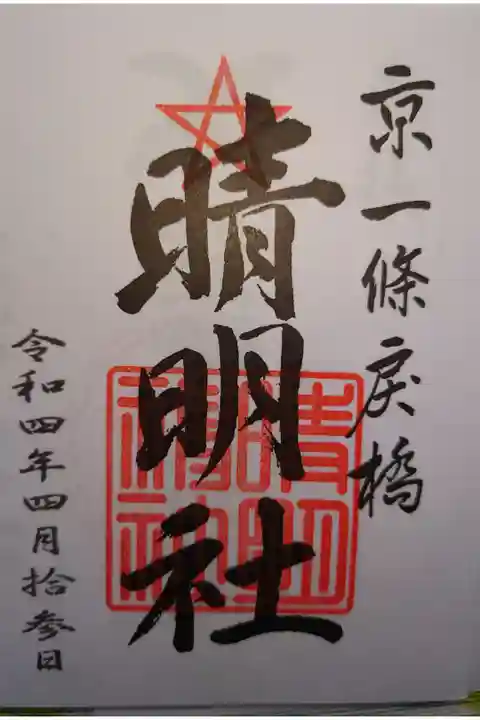 京一條戻橋
晴明社
晴明
神社
令和四年四月拾参日